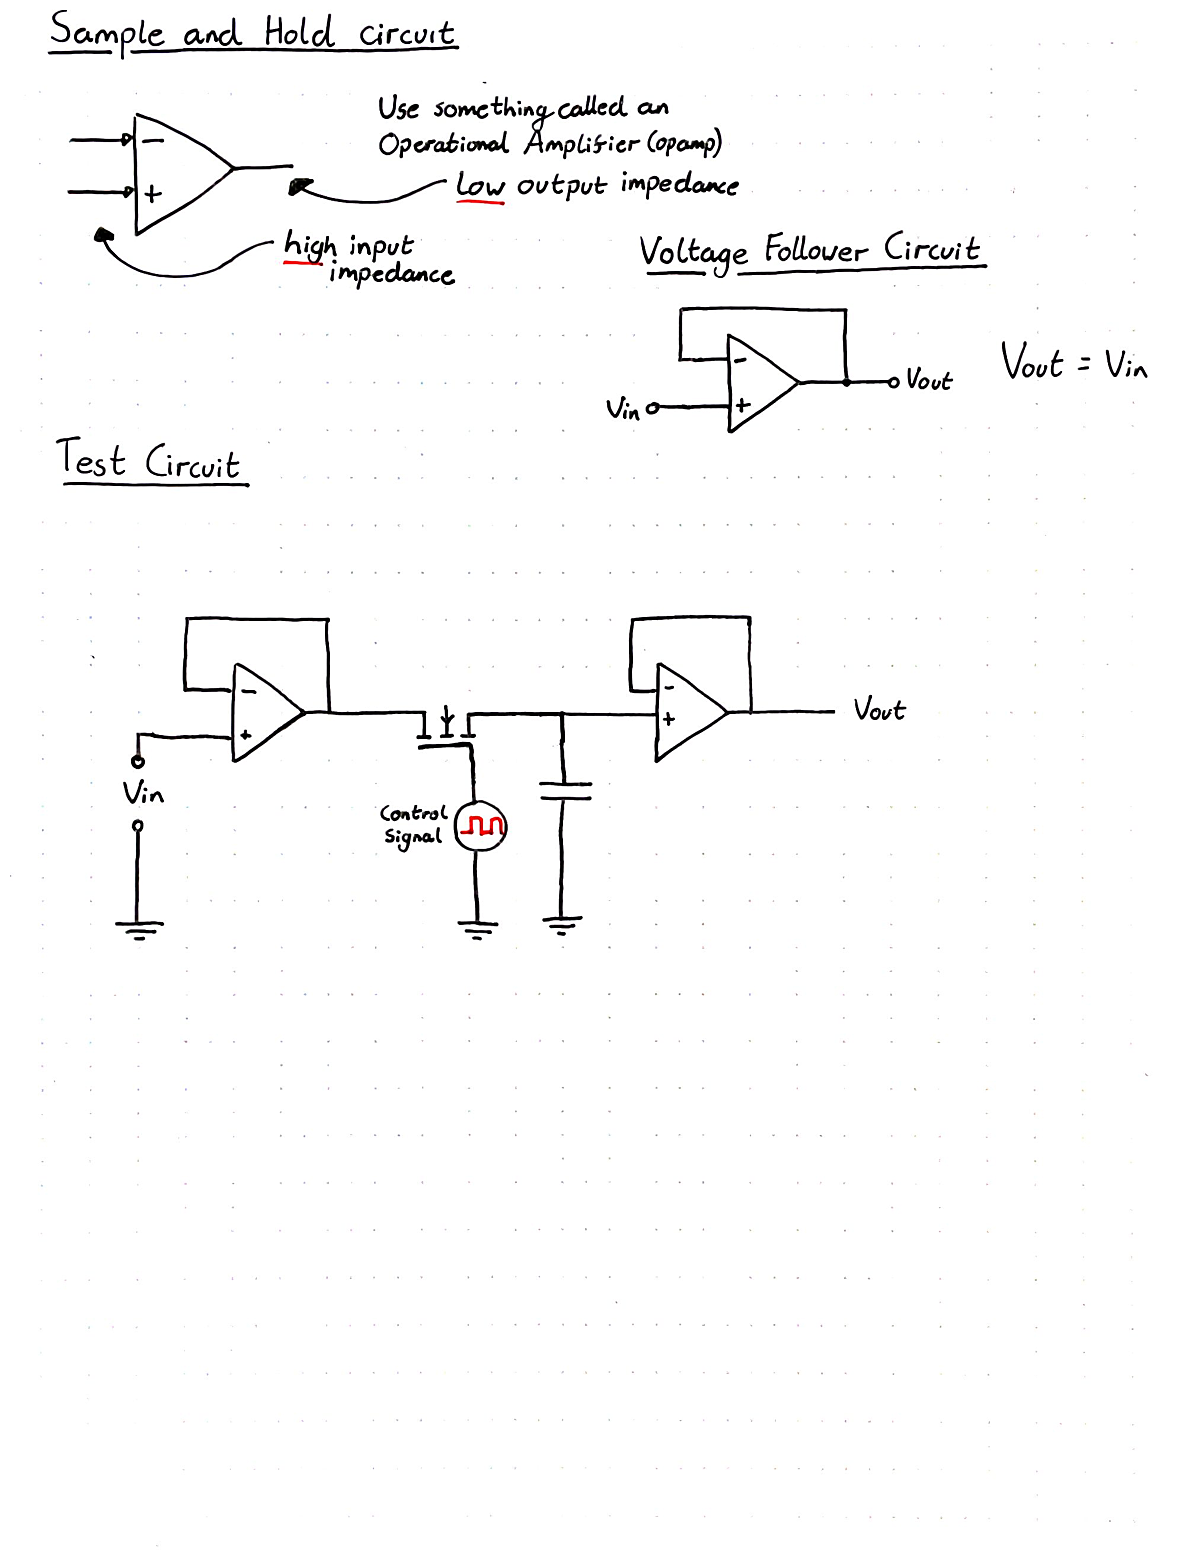 Sample and Hold circuit
Use something called an
Operational Amplifier (opamp)
Low output impedance
high input
impedance
Voltage Follower Circuit
Vout
Vout = Vin
Vin
Test Circuit
Vout
Vin
Control
Signal